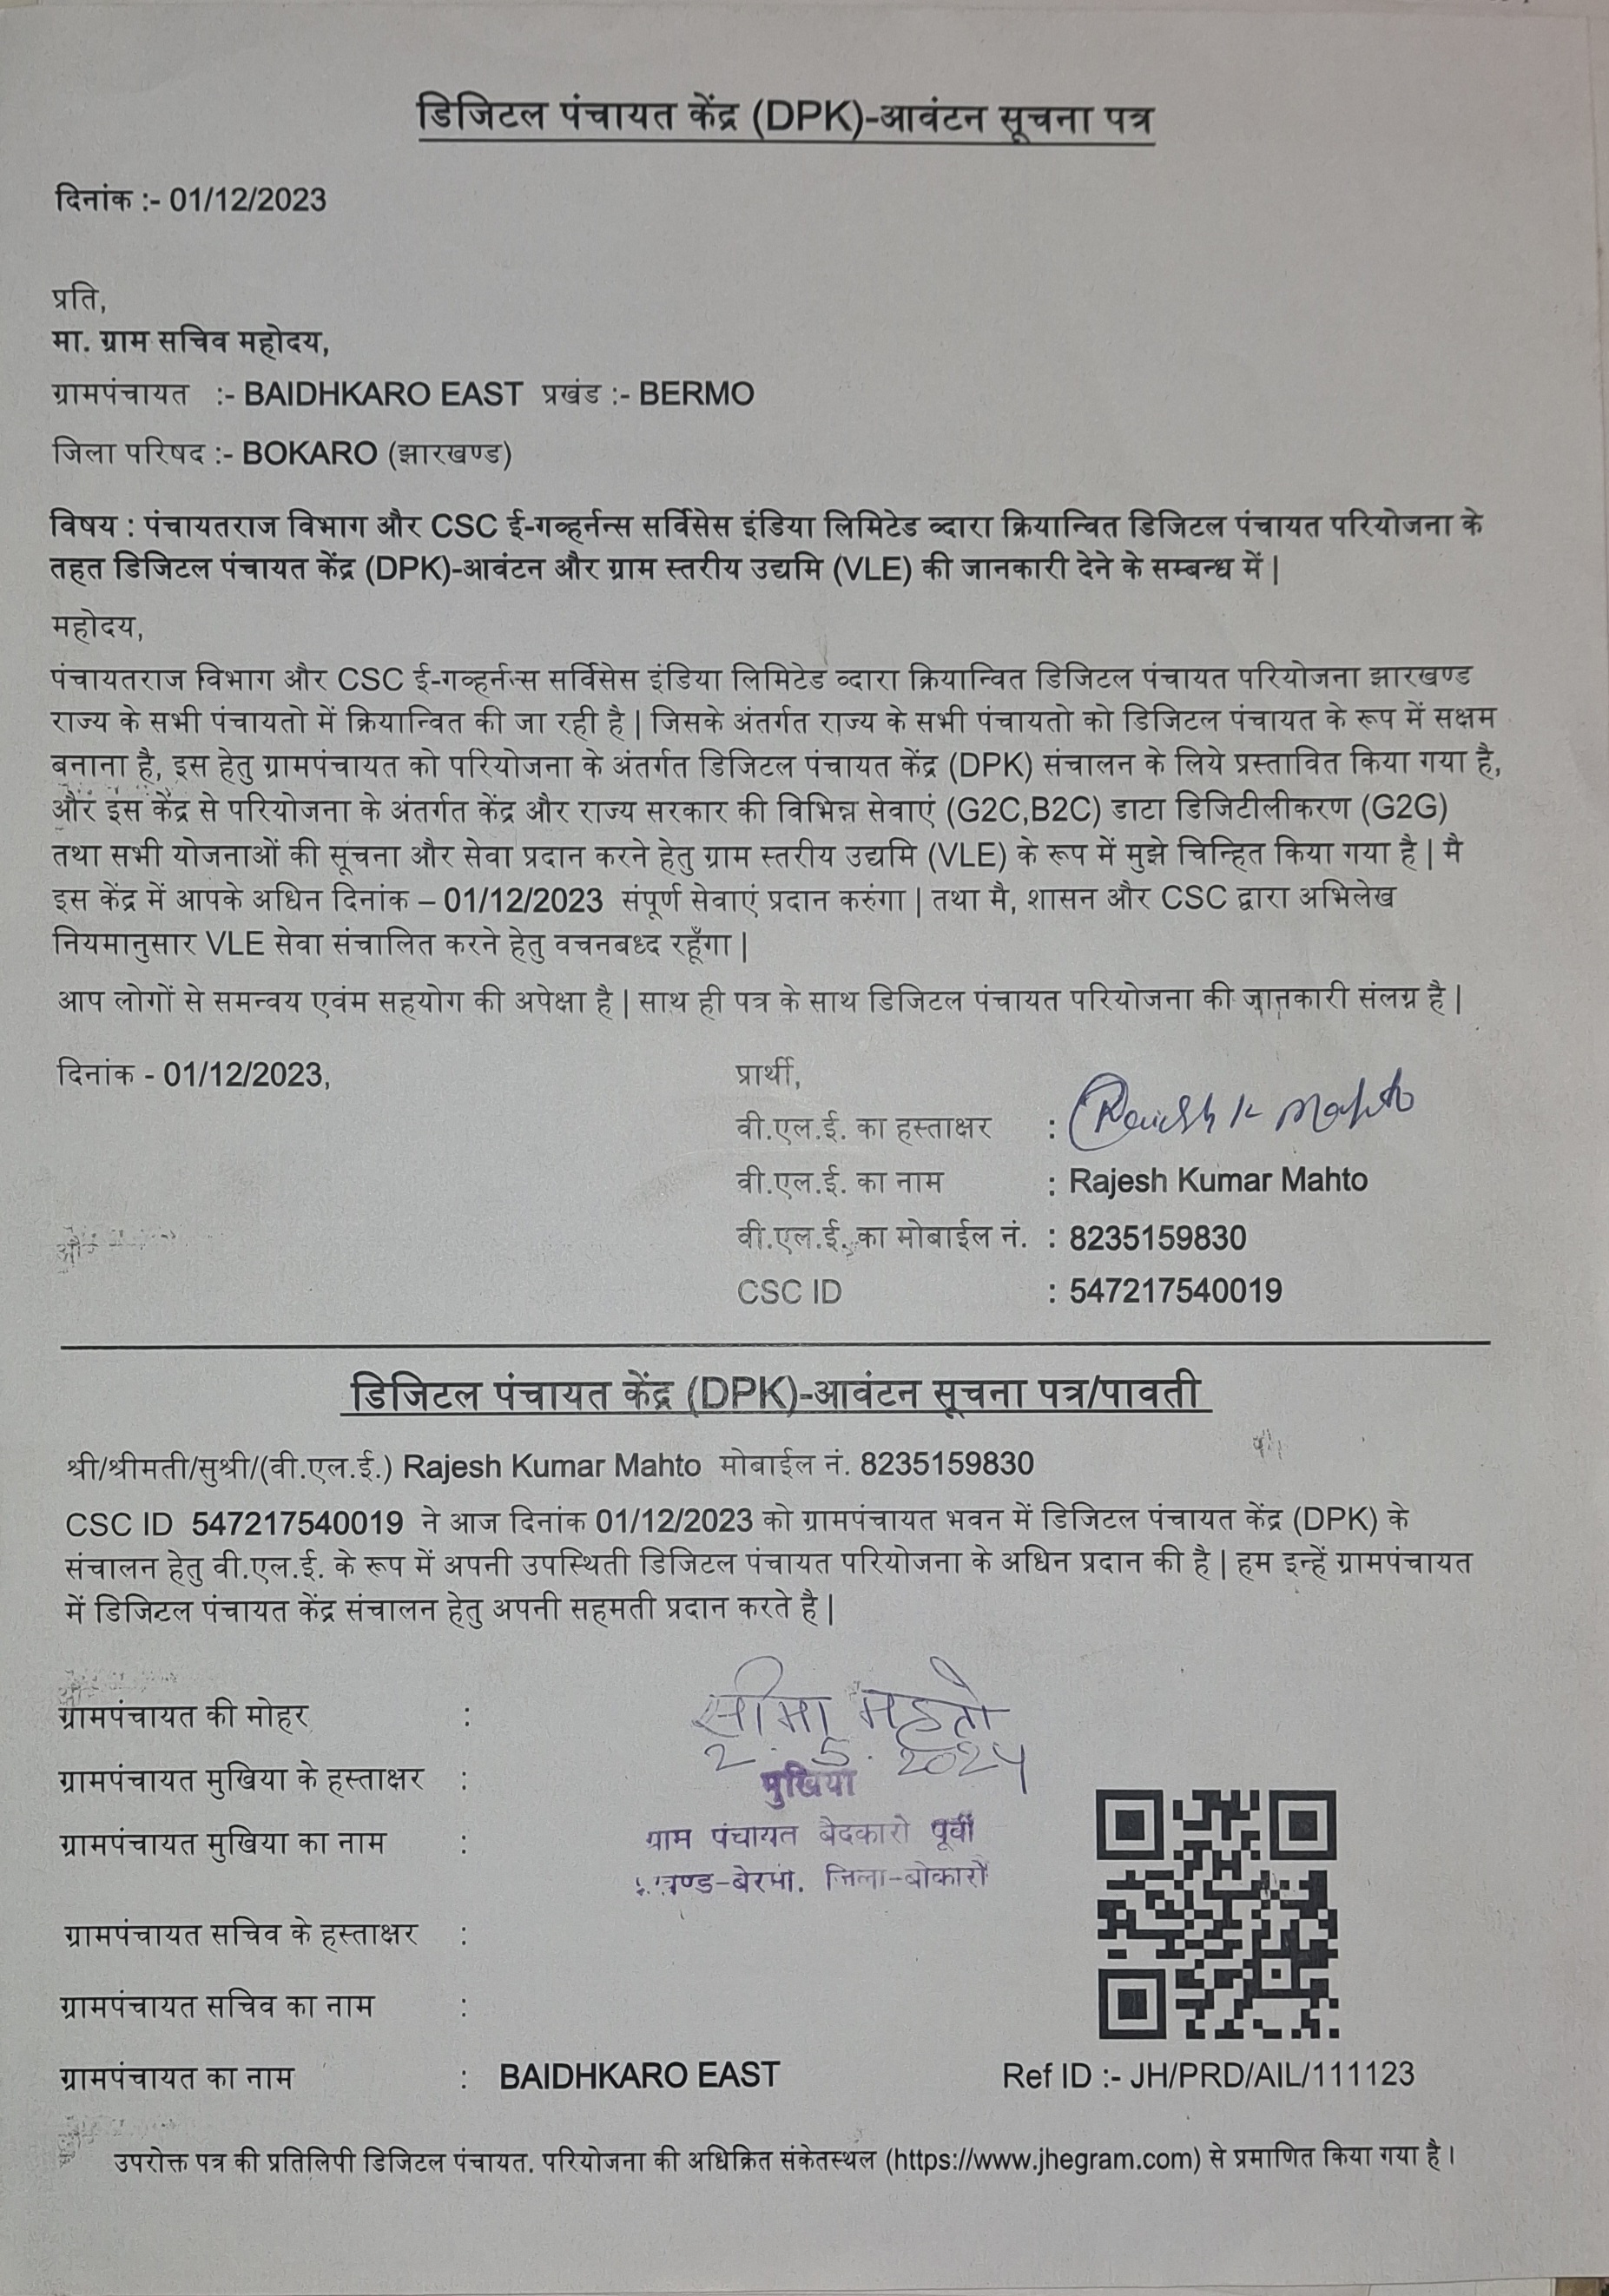 डिजिटल पंचायत केंद्र (DPK)-आवंटन सूचना पत्र
दिनांक :- 01/12/2023
प्रति,
मा. ग्राम सचिव महोदय,
ग्रामपंचायत :- BAIDHKARO EAST प्रखंड :- BERMO
जिला परिषद :- BOKARO (झारखण्ड)
विषय : पंचायतराज विभाग और CSC ई-गव्हर्नन्स सर्विसेस इंडिया लिमिटेड व्दारा क्रियान्वित डिजिटल पंचायत परियोजना के
तहत डिजिटल पंचायत केंद्र (DPK)-आवंटन और ग्राम स्तरीय उद्यमि (VLE) की जानकारी देने के सम्बन्ध में |
महोदय,
पंचायतराज विभाग और CSC ई-गव्हर्नन्स सर्विसेस इंडिया लिमिटेड व्दारा क्रियान्वित डिजिटल पंचायत परियोजना झारखण्ड
राज्य के सभी पंचायतो में क्रियान्वित की जा रही है | जिसके अंतर्गत राज्य के सभी पंचायतो को डिजिटल पंचायत के रूप में सक्षम
बनाना है, इस हेतु ग्रामपंचायत को परियोजना के अंतर्गत डिजिटल पंचायत केंद्र (DPK) संचालन के लिये प्रस्तावित किया गया है,
और इस केंद्र से परियोजना के अंतर्गत केंद्र और राज्य सरकार की विभिन्न सेवाएं (G2C,B2C) डाटा डिजिटीलीकरण (G2G)
तथा सभी योजनाओं की सूचना और सेवा प्रदान करने हेतु ग्राम स्तरीय उद्यमि (VLE) के रूप में मुझे चिन्हित किया गया है | मै
इस केंद्र में आपके अधिन दिनांक – 01/12/2023 संपूर्ण सेवाएं प्रदान करुंगा | तथा मै, शासन और CSC द्वारा अभिलेख
नियमानुसार VLE सेवा संचालित करने हेतु वचनबध्द रहूँगा |
आप लोगों से समन्वय एवंम सहयोग की अपेक्षा है | साथ ही पत्र के साथ डिजिटल पंचायत परियोजना की जानकारी संलग्न है |
दिनांक - 01/12/2023,
प्रार्थी,
वी.एल.ई. का हस्ताक्षर : Rajesh K Mahto
वी.एल.ई. का नाम : Rajesh Kumar Mahto
वी.एल.ई. का मोबाईल नं. : 8235159830
CSC ID : 547217540019
डिजिटल पंचायत केंद्र (DPK)-आवंटन सूचना पत्र/पावती
श्री/श्रीमती/सुश्री/(वी.एल.ई.) Rajesh Kumar Mahto मोबाईल नं. 8235159830
CSC ID 547217540019 ने आज दिनांक 01/12/2023 को ग्रामपंचायत भवन में डिजिटल पंचायत केंद्र (DPK) के
संचालन हेतु वी.एल.ई. के रूप में अपनी उपस्थिती डिजिटल पंचायत परियोजना के अधिन प्रदान की है | हम इन्हें ग्रामपंचायत
में डिजिटल पंचायत केंद्र संचालन हेतु अपनी सहमती प्रदान करते है |
ग्रामपंचायत की मोहर :
सीमा महतो
2.5.2024
ग्रामपंचायत मुखिया के हस्ताक्षर :
मुखिया
ग्रामपंचायत मुखिया का नाम :
ग्राम पंचायत बेदकारो पूर्वी
बेरमो. जिला-बोकारो
ग्रामपंचायत सचिव के हस्ताक्षर :
ग्रामपंचायत सचिव का नाम :
ग्रामपंचायत का नाम : BAIDHKARO EAST
Ref ID :- JH/PRD/AIL/111123
उपरोक्त पत्र की प्रतिलिपी डिजिटल पंचायत. परियोजना की अधिक्रित संकेतस्थल (https://www.jhegram.com) से प्रमाणित किया गया है।